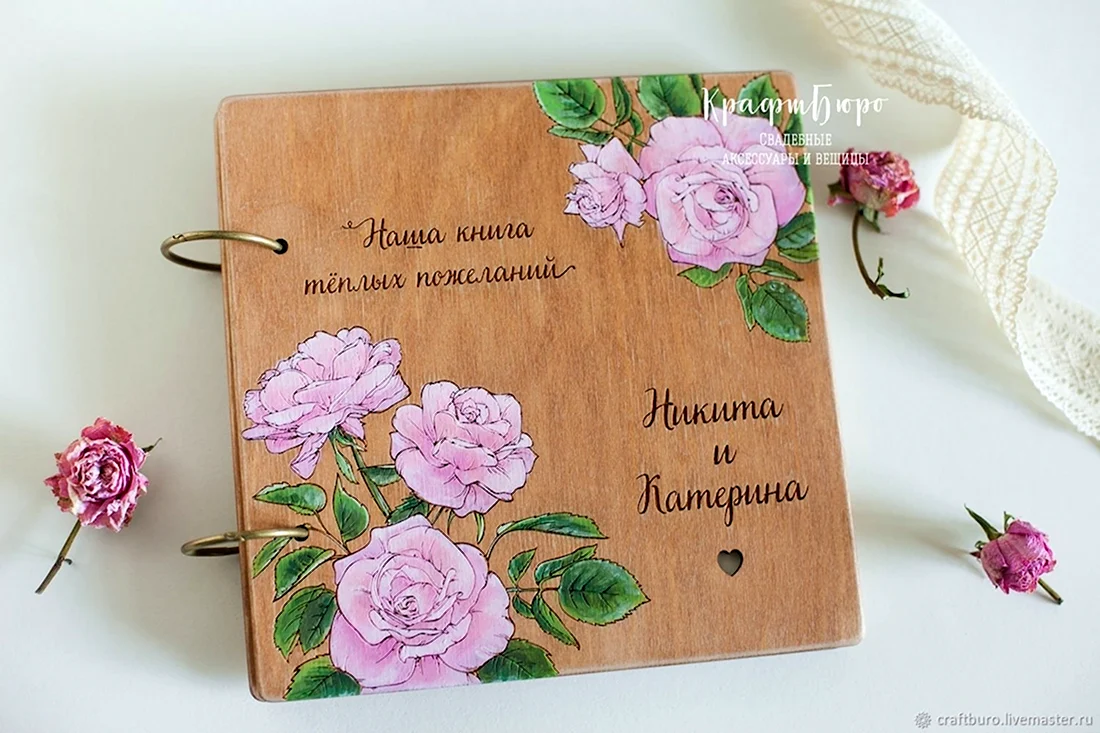 КрафтБюро
Свадебные
аксессуары и вещицы
Наша книга
тёплых пожеланий
Никита
и
Катерина
craftburo.livemaster.ru